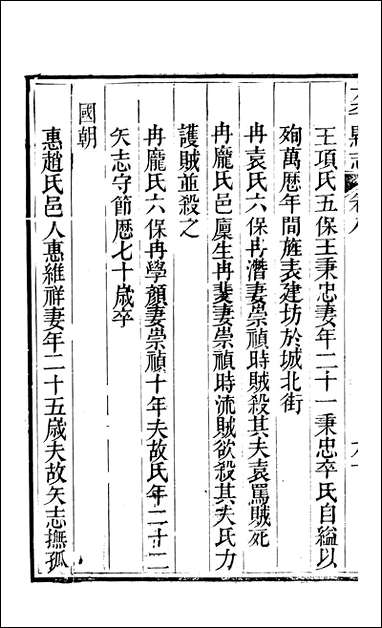 縣志 卷八
王項氏五保王秉忠妻年二十一秉忠卒氏自縊以
殉萬歷年間旌表建坊於城北街
冉袁氏六保冉潛妻崇禎時賊殺其夫袁罵賊死
冉龐氏邑廩生冉斐妻崇禎時流賊欲殺其夫氏力
護賊並殺之
冉龐氏六保冉學顏妻崇禎十年夫故氏年二十二
矢志守節歷七十歲卒
國朝
惠趙氏邑人惠維祥妻年二十五歲夫故矢志撫孤